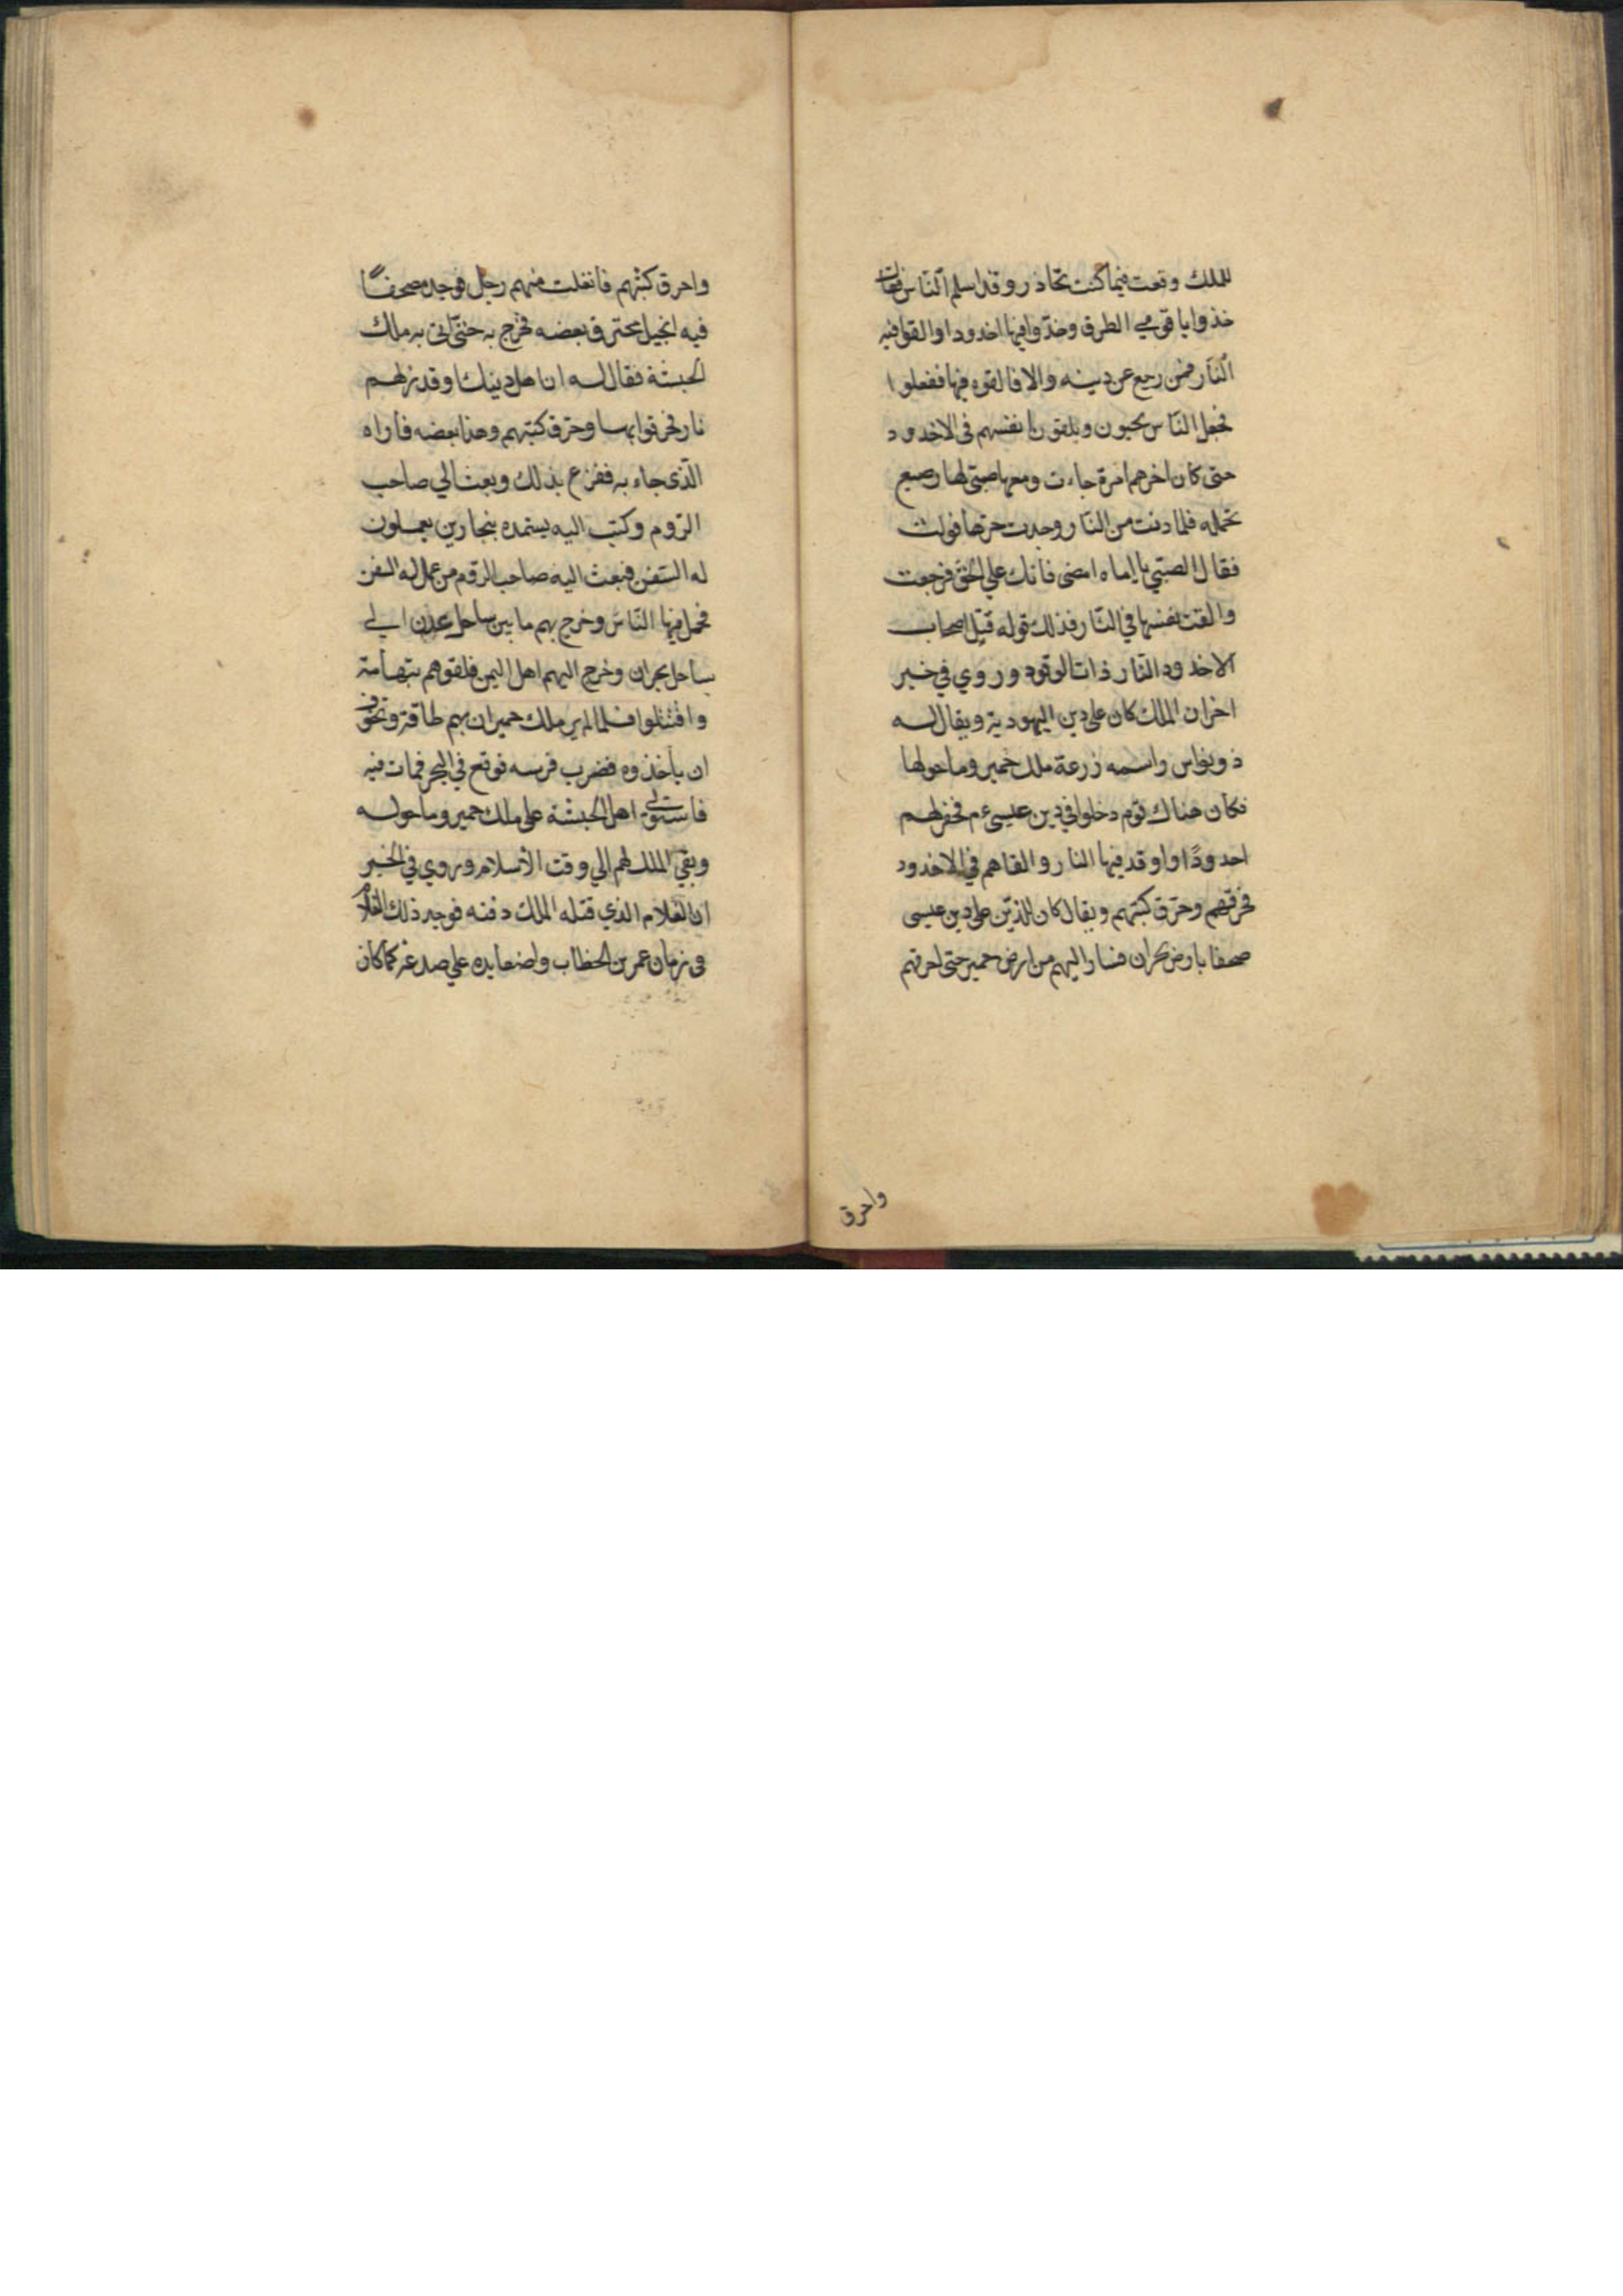 للملك وقعت فيما كنت تحاذر وقد اسلم النّاس فقال
خذوا يا قومي الطرق وخدّوا فيها اخدودا والقوا فيه
النّار فمن رجع عن دينه والا فالقوه فيها ففعلوا
فجعل النّاس يجيون ويلقون بانفسهم في الاخدود
حتى كان اخرهم امرة جاءت ومعها صبيّ لها رضيع
تحمله فلما دنت من النّار وجدت حرّها فولت
فقال الصبّي يا اماه امضى فانك علي الحقّ فرجعت
والقت نفسها في النّار فذلك قوله قتل اصحاب
الاخدود النّار ذات الوقود وروي في خبر
اخر ان الملك كان على دين اليهودية ويقال له
ذو نواس واسمه زرعة ملك حمير وما حولها
فكان هناك قوم دخلوا في دين عيسى ءم فحفر لهم
احدودًا واوقد فيها النار والقاهم في الاخدود
فحرقهم وحرّق كتبهم ويقال كان للذّين على دين عيسى
صحفا بارض نجران فسار اليهم من ارض حمير حتى احرقهم
واحرق
واحرق كتبهم فانفلت منهم رجل فوجد مصحفًا
فيه انجيل محترق بعضه فخرج به حتّى اتى به ملك
الحبشة فقال له ان اهل دينك اوقدت لهم
نار فحرقوا بها وحرّق كتبهم وهذا بعضه فاراه
الّذى جاء به ففزع بذلك وبعث الي صاحب
الرّوم وكتب اليه يستمده بنجارين يعملون
له السّفن فبعث اليه صاحب الرّوم من عمل له السفن
فحمل فيها النّاس وخرج بهم ما بين ساحل عدن الي
ساحل نجران وخرج اليهم اهل اليمن فلقوهم بتهامة
واقتتلوا فلما لم ير ملك حمير ان بهم طاقة وتخوّف
ان ياخذوه فضرب فرسه فوقع في البحر فمات فيه
فاستولي اهل الحبشة على ملك حمير وما حوله
وبقي الملك لهم الي وقت الاسلام وروي في الخبر
ان الغلام الذي قتله الملك دفنه فوجد ذلك الغلام
في زمان عمر بن الخطاب واضعا يده علي صدغه كما كان